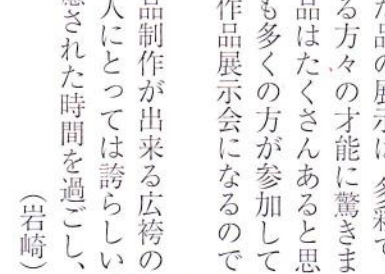 た品の展示に、多彩で
る方々の才能に驚きま
品はたくさんあると思
も多くの方が参加して
作品展示会になるので
品制作が出来る広袴の
人にとっては誇らしい
された時間を過ごし、
（岩崎）